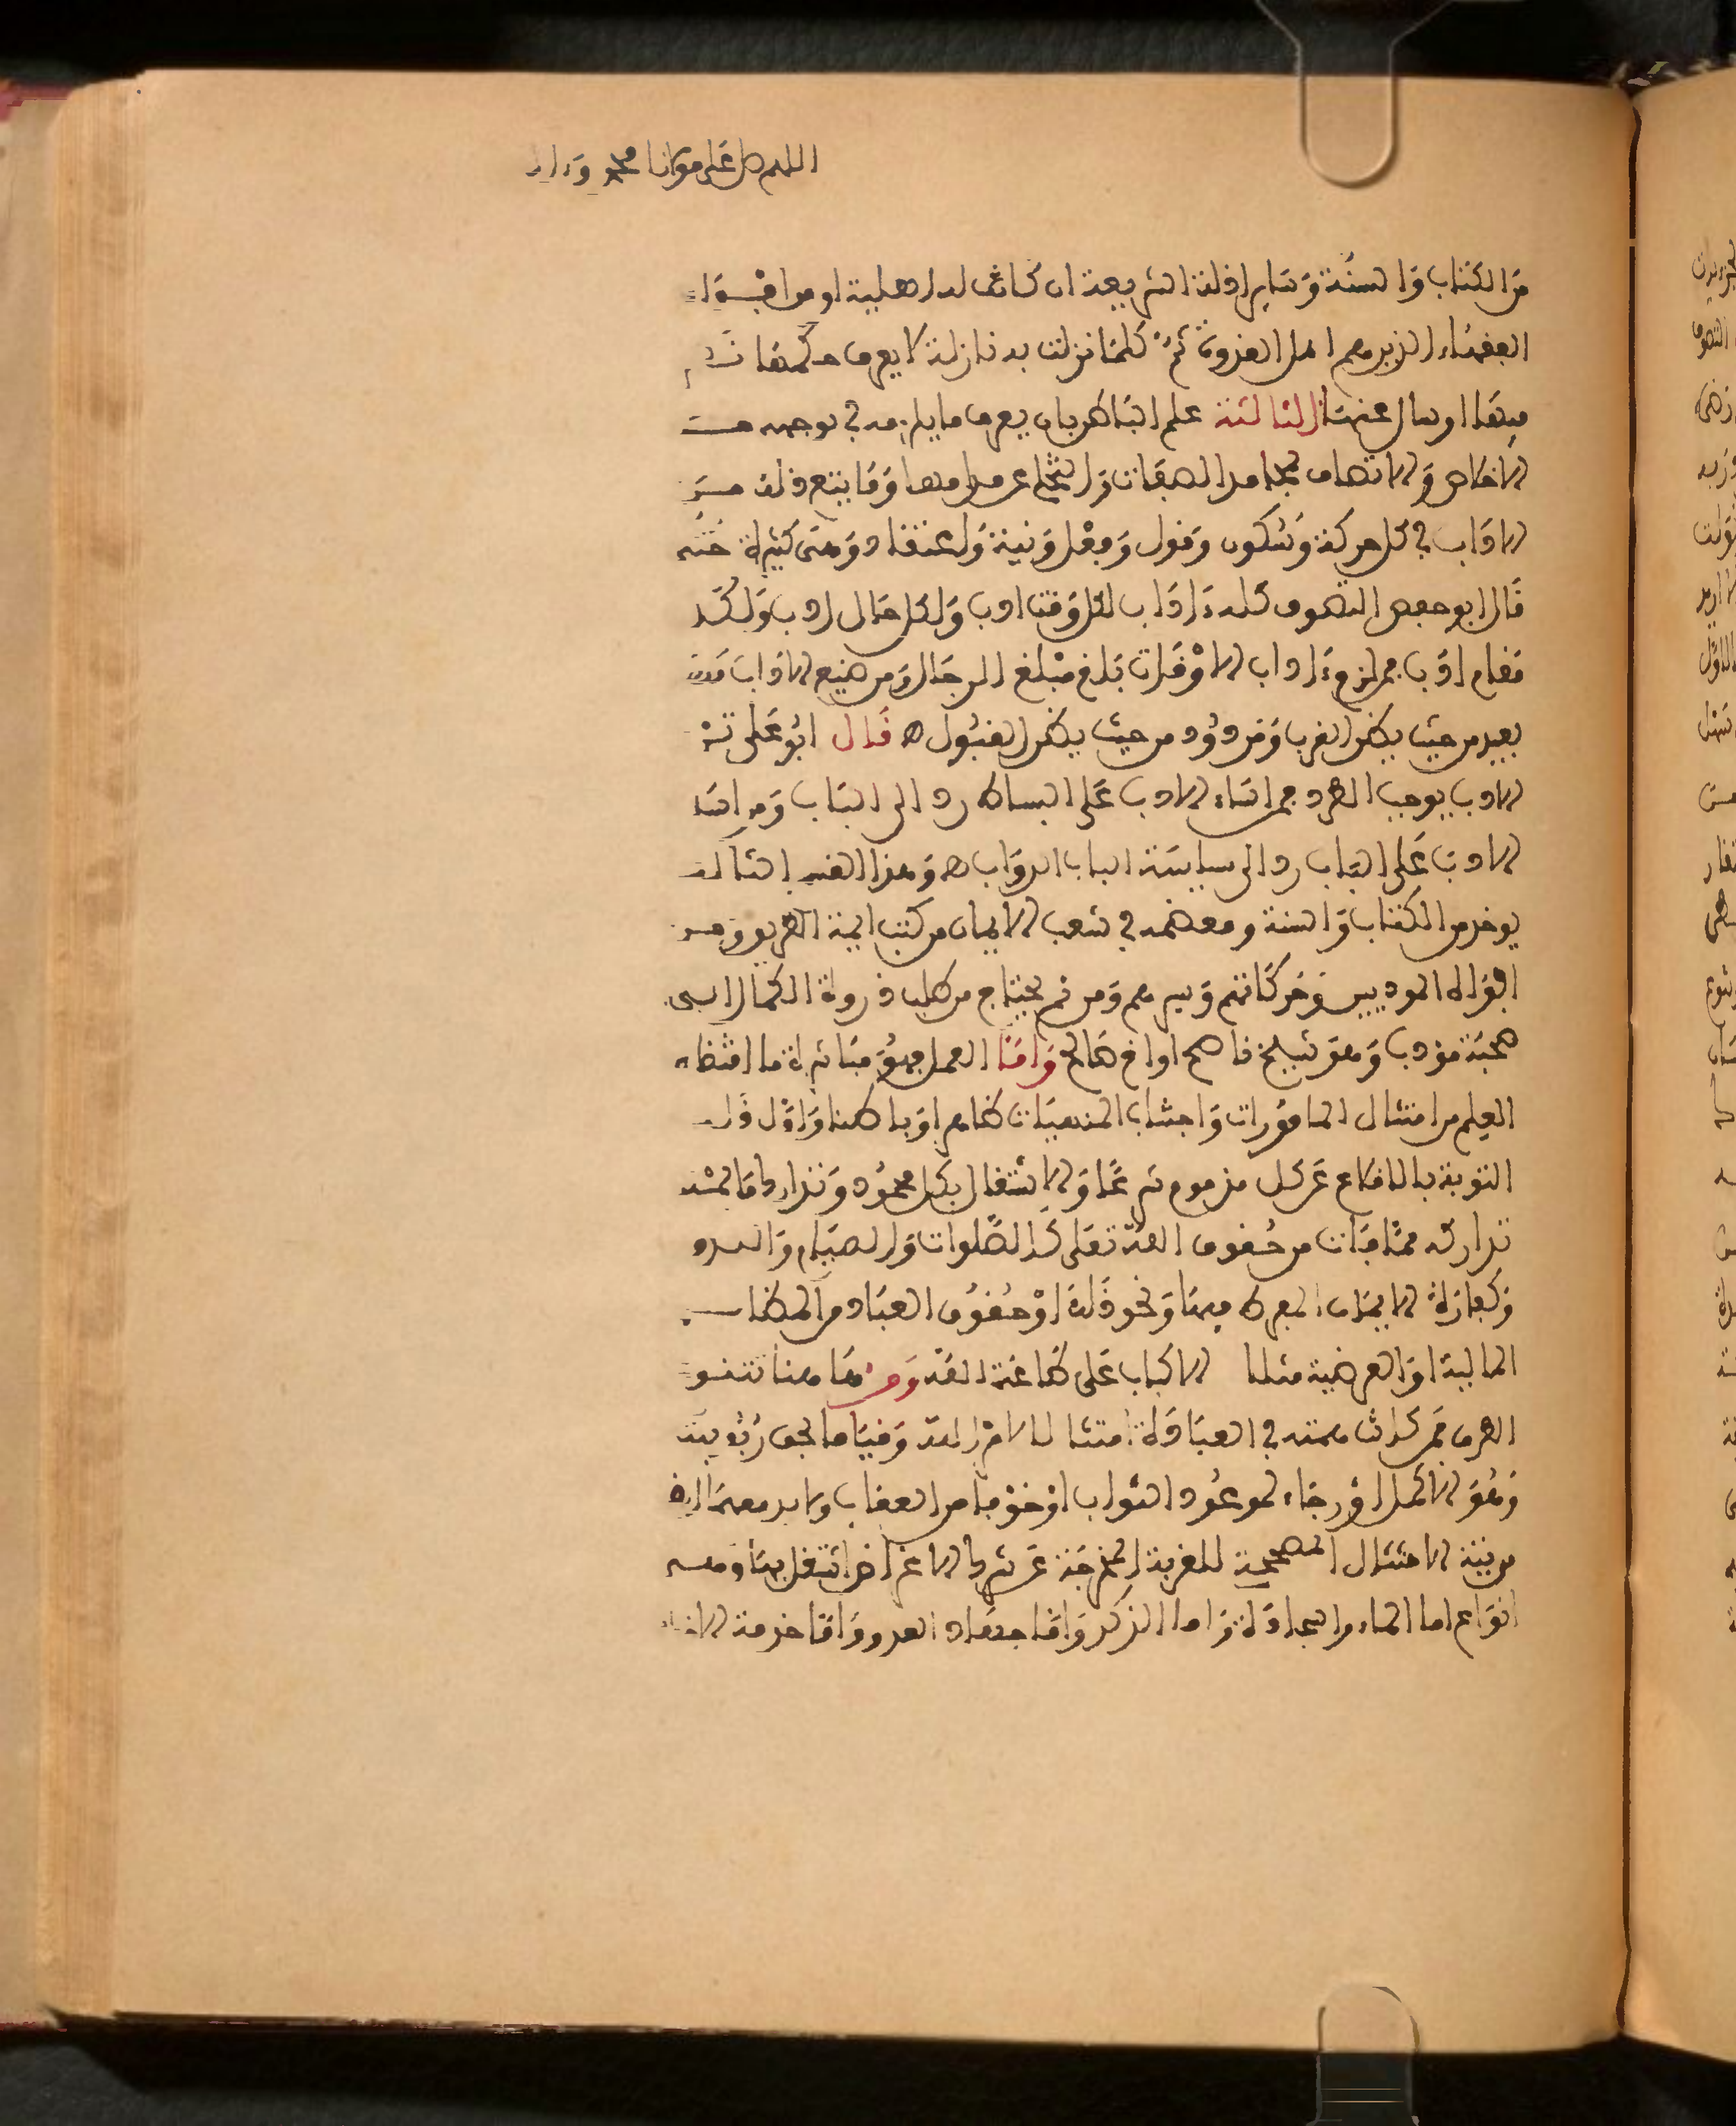 اللهم صل على مولانا محمد وءال
من الكتاب والسنة وساير ادلة الشريعة ان كانت له اهلية او من افواه
الفقهاء الذين هم اهل القدوة ثم كلما نزلت به نازلة لا يعرف حكمها
فيها او سال عنها الثالثة علم الباطن بان يعرف ما يلزمه في توجهه من
الاخلاص والاتصاف بمحامد الصفات والتخلي عن مذامها وما يتبع ذلك من
الاداب في كل حركة وسكون وقول وفعل ونية واعتقاد وهي كثيرة
قال ابو حفص التصوف كله ءاداب لكل وقت ادب ولكل حال ادب ولكل
مقام ادب فمن لزم ءاداب الاوقات بلغ مبلغ الرجال ومن ضيع الاداب فهو
بعيد من حيث يظن القرب ومردود من حيث يظن القبول قال ابو علي ترك
الادب يوجب الطرد فمن اساء الادب على البساط رد الى الباب ومن اساء
الادب على الباب رد الى سياسة الدواب وهذا القسم الثالث
يوخذ من الكتاب والسنة ومعظمه في شعب الايمان من كتب ايمة الطريق ومن
افواه المودبين وحركاتهم وسيرهم ومن ثم يحتاج من طلب ذروة الكمال الى
صحبة مؤدب وهو شيخ ناصح او اخ صالح واما العمل فهو مباشرة ما اقتضاه
العلم من امتثال المامورات واجتناب المنهيات ظاهرا وباطنا واول ذلك
التوبة بالاقلاع عن كل مذموم شرعا والاشتغال بكل محمود وتدارك ما يمكن
تداركه مما فات من حقوق الله تعلى كالصلوات والصيام والنذر
وكفارة الايمان المفرط فيها ونحو ذلك او حقوق العباد من المظالم
المالية او العرضية مثلا الاكباب على طاعة الله ومن هاهنا تتنوع
الطرق فمن كانت همته في العبادة امتثالا لامر الله وقياما بحق ربوبيته
وهو الاكمل او رجاء لموعود الثواب او خوفا من العقاب ولا بد معهما
من نية الامتثال المصححة للقربة المخرجة عن شرط الاغراض اشتغل بها وهي
انواع اما الماء والسجادة واما الذكر واما جهاد العدو واما خدمة